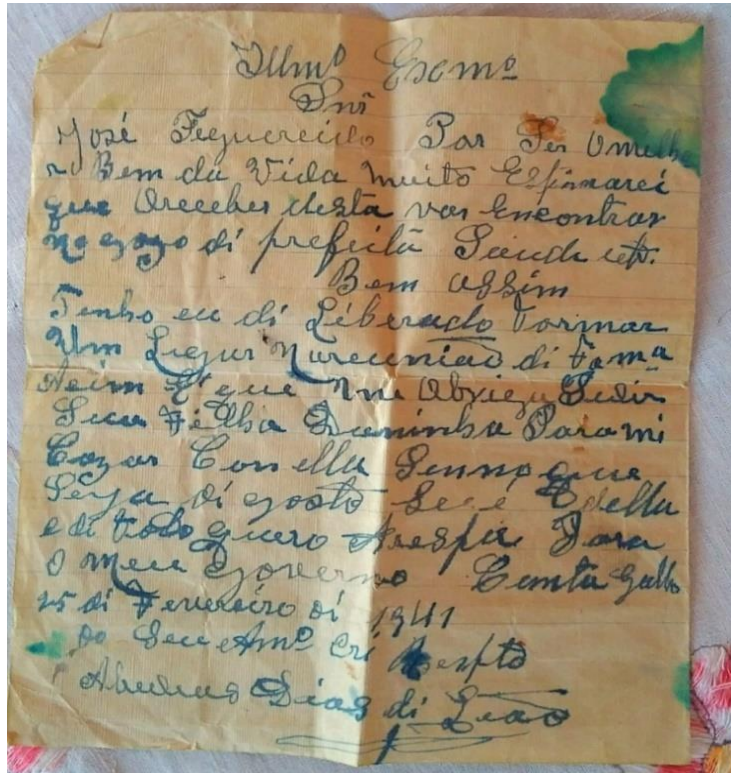 Illmº Exmº
Snr
José Feguereido Por Ser Omelho
r Bem da Vida Muito Estimarei
que Oreceber desta vas Encontrar
no gozo di prefeita Saude etc.
Bem assim
Tenho eu di Liberado Tormar
Um Lugar Nareunião di Famª
Asim E' que me Obriga Pedir
Sua Filha Para mi
Cazar Con ella Senno que
Seja di gosto Seu é Della
e di todo quero Aresposta Para
O Meu Governo Canta Gallo
25 di Fevereiro di 1941
Do Seu Amº Cri
Dias di Leão